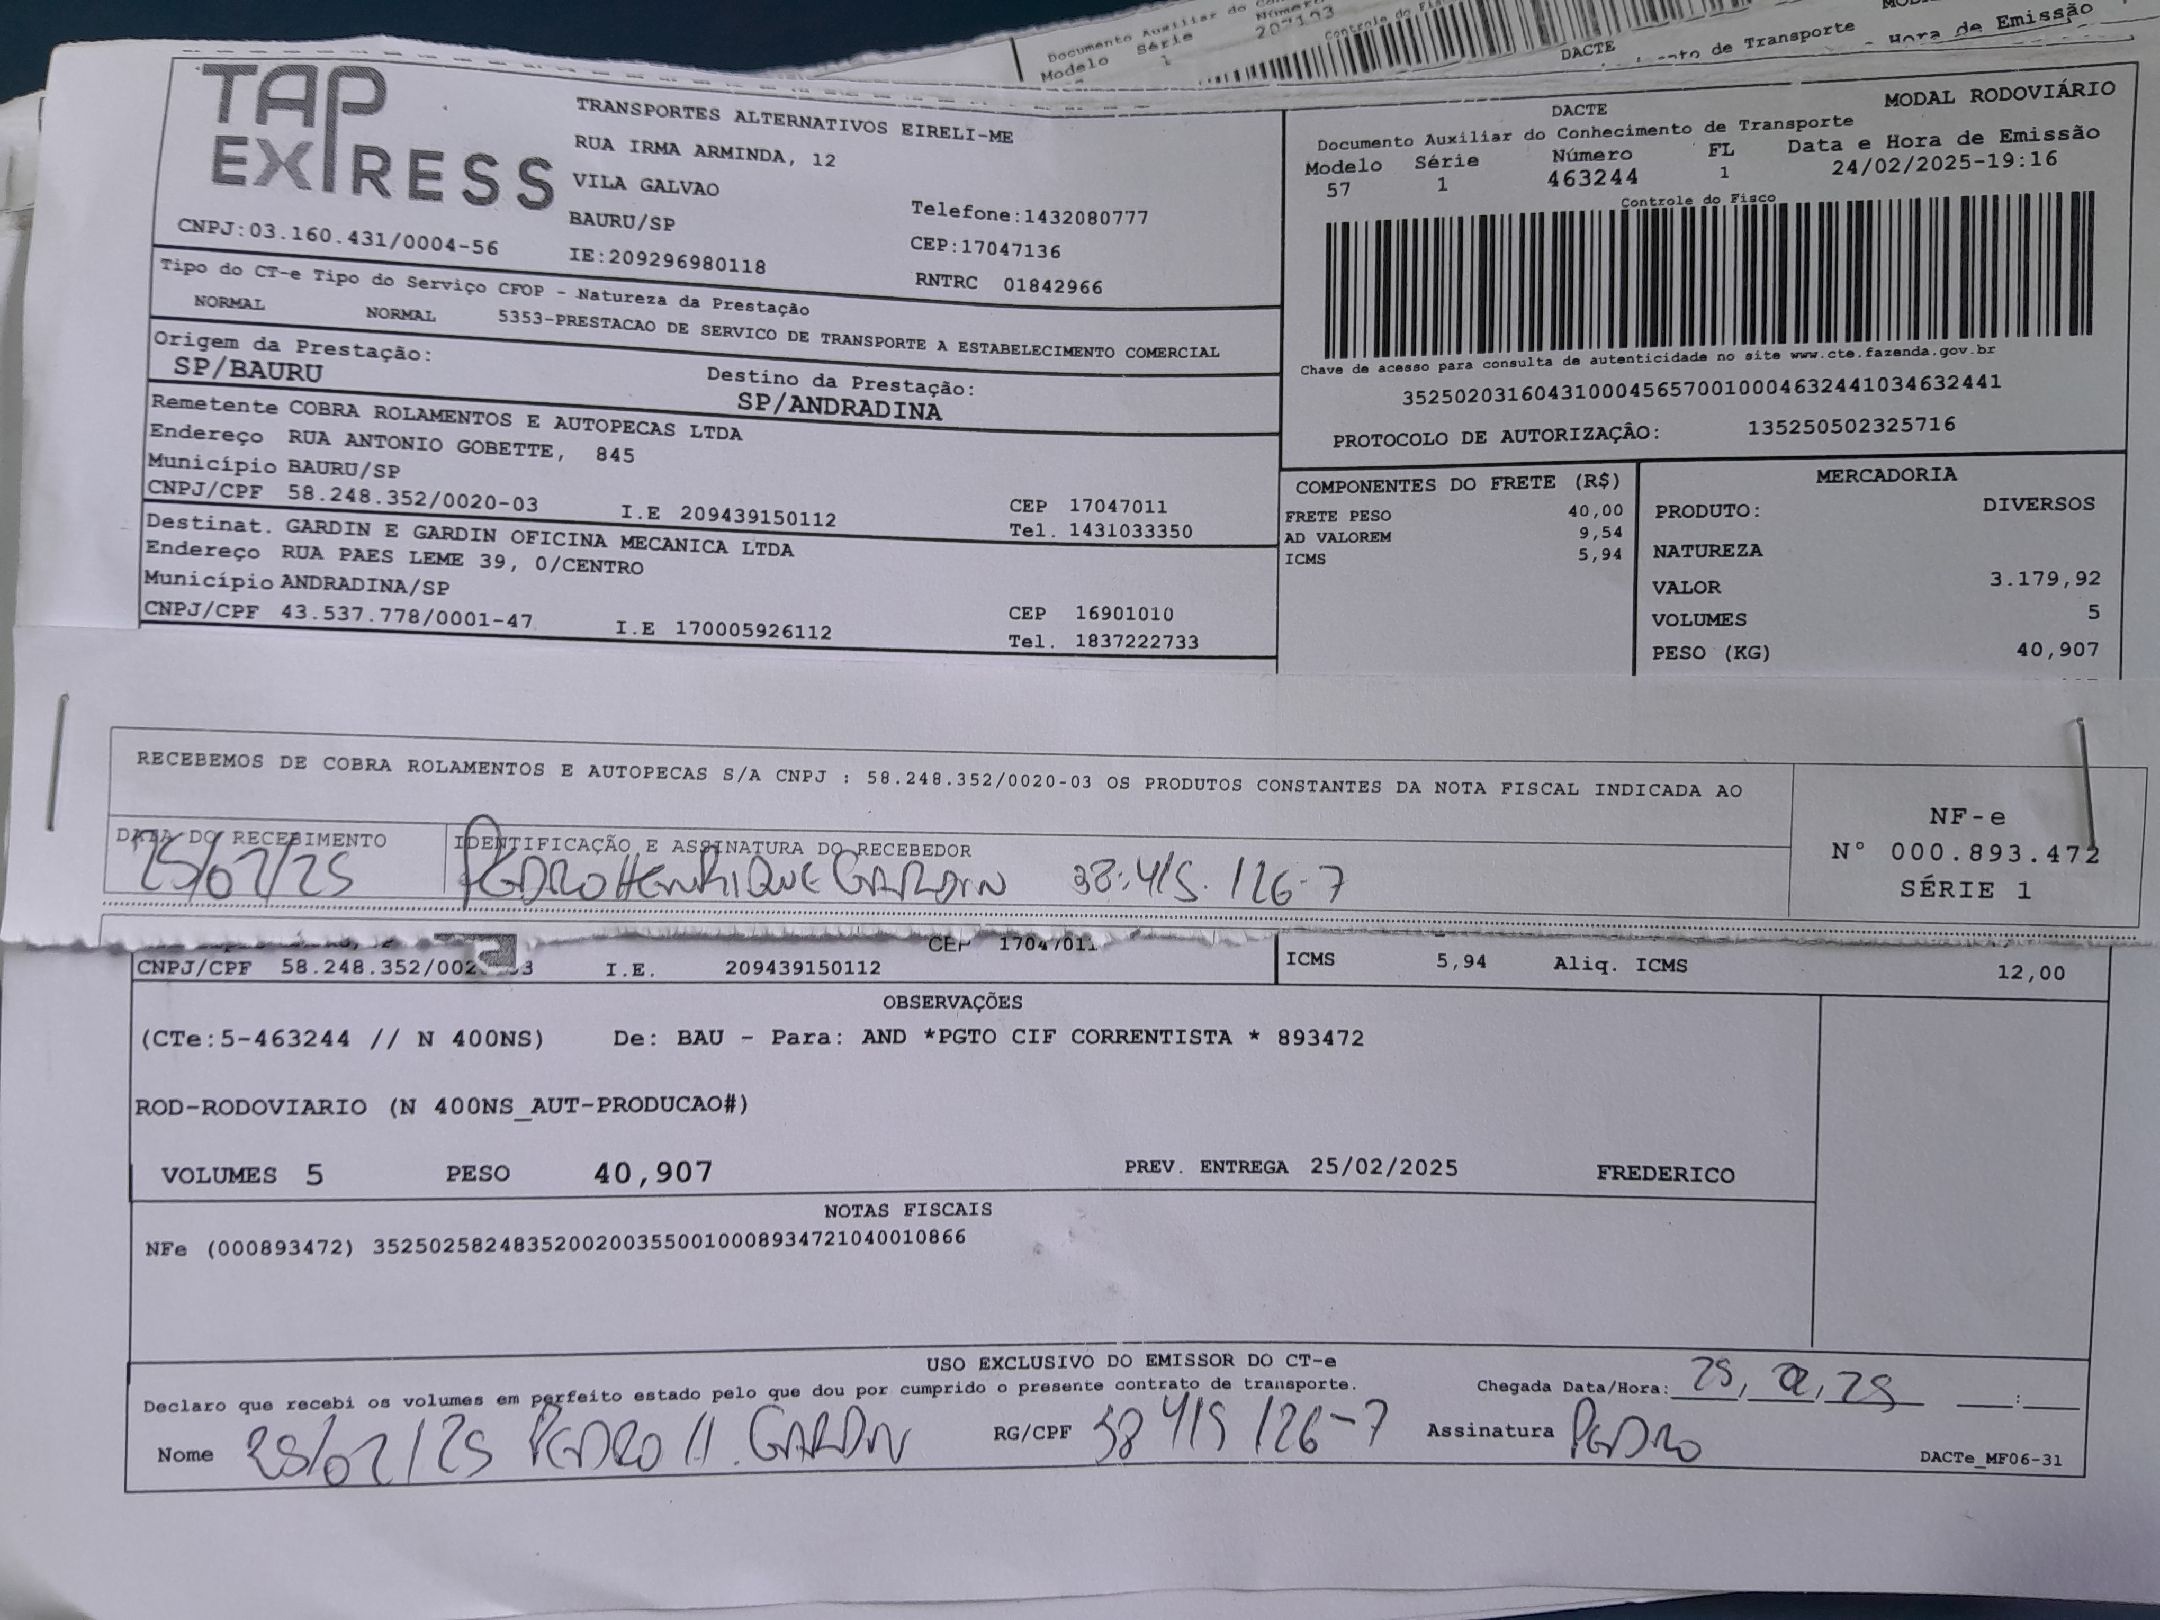 Documento Auxiliar do
Modelo Série Número
1 207193
DACTE
de Transporte
Hora de Emissão
TAP EXPRESS
TRANSPORTES ALTERNATIVOS EIRELI-ME
RUA IRMA ARMINDA, 12
VILA GALVAO
BAURU/SP
Telefone:1432080777
CNPJ:03.160.431/0004-56
IE:209296980118
CEP:17047136
RNTRC 01842966
DACTE
MODAL RODOVIÁRIO
Documento Auxiliar do Conhecimento de Transporte
Modelo Série Número FL Data e Hora de Emissão
57 1 463244 1 24/02/2025-19:16
Controle do Fisco
Chave de acesso para consulta de autenticidade no site www.cte.fazenda.gov.br
35250203160431000456570010004632441034632441
PROTOCOLO DE AUTORIZAÇÂO: 135250502325716
Tipo do CT-e Tipo do Serviço CFOP - Natureza da Prestação
NORMAL NORMAL 5353-PRESTACAO DE SERVICO DE TRANSPORTE A ESTABELECIMENTO COMERCIAL
Origem da Prestação:
SP/BAURU
Destino da Prestação:
SP/ANDRADINA
Remetente COBRA ROLAMENTOS E AUTOPECAS LTDA
Endereço RUA ANTONIO GOBETTE, 845
Município BAURU/SP
CEP 17047011
CNPJ/CPF 58.248.352/0020-03 I.E 209439150112 Tel. 1431033350
Destinat. GARDIN E GARDIN OFICINA MECANICA LTDA
Endereço RUA PAES LEME 39, 0/CENTRO
Município ANDRADINA/SP
CEP 16901010
CNPJ/CPF 43.537.778/0001-47 I.E 170005926112 Tel. 1837222733
COMPONENTES DO FRETE (R$)
FRETE PESO 40,00
AD VALOREM 9,54
ICMS 5,94
MERCADORIA
PRODUTO: DIVERSOS
NATUREZA
VALOR 3.179,92
VOLUMES 5
PESO (KG) 40,907
RECEBEMOS DE COBRA ROLAMENTOS E AUTOPECAS S/A CNPJ : 58.248.352/0020-03 OS PRODUTOS CONSTANTES DA NOTA FISCAL INDICADA AO
DATA DO RECEBIMENTO
IDENTIFICAÇÃO E ASSINATURA DO RECEBEDOR
25/02/25 PEDRO HENRIQUE GARDIN 38.415.126-7
NF-e
N° 000.893.472
SÉRIE 1
CEP 17047011
CNPJ/CPF 58.248.352/002 3 I.E. 209439150112
ICMS 5,94 Aliq. ICMS 12,00
OBSERVAÇÕES
(CTe:5-463244 // N 400NS) De: BAU - Para: AND *PGTO CIF CORRENTISTA * 893472
ROD-RODOVIARIO (N 400NS_AUT-PRODUCAO#)
VOLUMES 5 PESO 40,907 PREV. ENTREGA 25/02/2025 FREDERICO
NOTAS FISCAIS
NFe (000893472) 35250258248352002003550010008934721040010866
USO EXCLUSIVO DO EMISSOR DO CT-e
Declaro que recebi os volumes em perfeito estado pelo que dou por cumprido o presente contrato de transporte.
Chegada Data/Hora: 25, 02, 25 :
Nome 25/02/25 PEDRO H. GARDIN RG/CPF 38 415 126-7 Assinatura PEDRO
DACTe_MF06-31